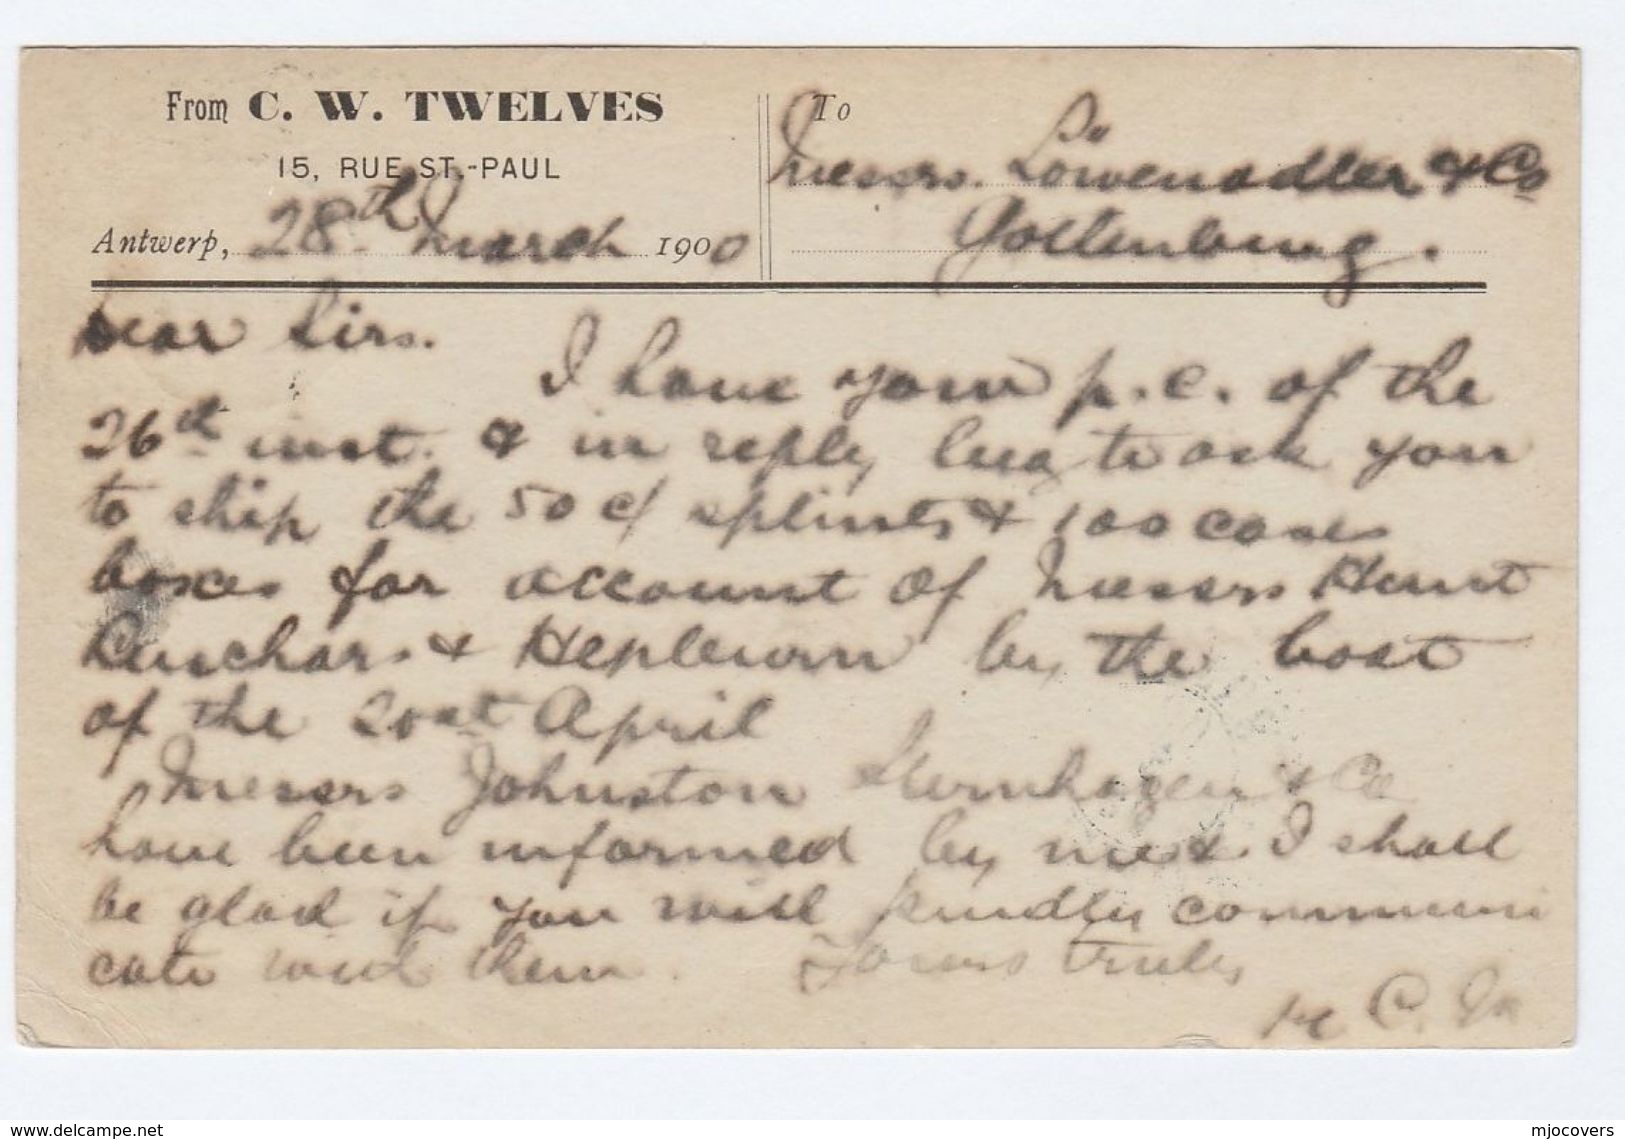 From C. W. TWELVES
15, RUE ST.-PAUL
Antwerp, 28th March 1900
To
Messrs. Löwenadler & Co
Gottenburg.
Dear Sirs.
I have your p.c. of the
26th inst. & in reply beg to ask you
to ship the 50 c/ splints & 100 cases
boxes for account of Messrs Hunt
& Hepburn by the boat
of the April
Messrs Johnston Sternhagen & Co
have been informed by me & I shall
be glad if you will kindly communi
cate with them. Yours truly
www.delcampe.net
mjocovers